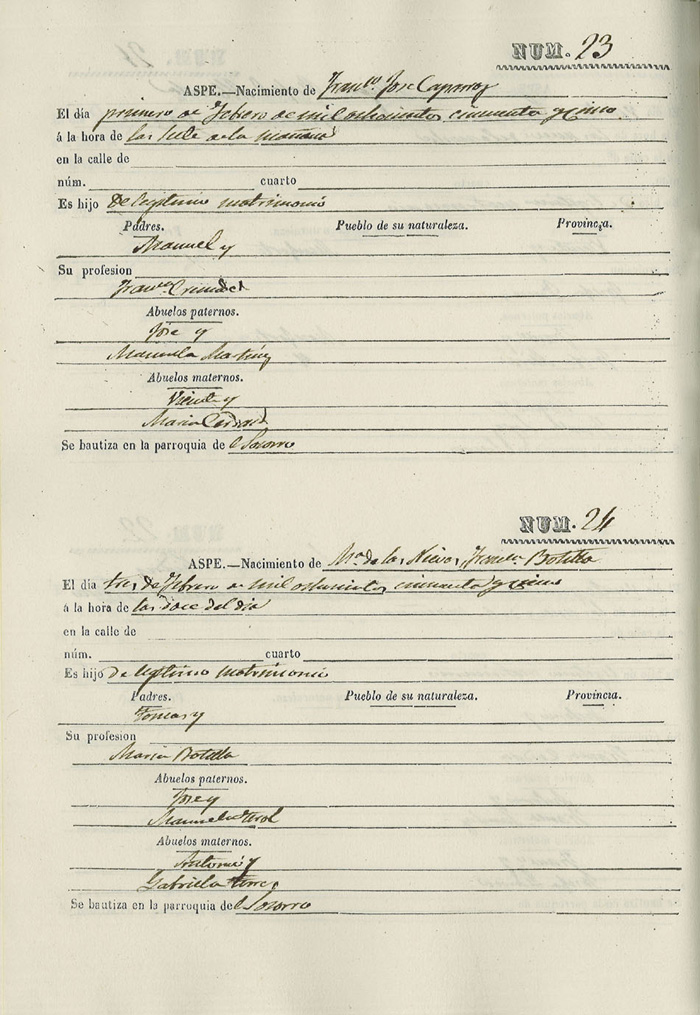 NUM. 23
ASPE.—Nacimiento de Franco. Jose Caparroz
El día primero de Febrero de mil ochocientos cincuenta y cinco
á la hora de las siete de la mañana
en la calle de
núm. cuarto
Es hijo de legitimo matrimonio
Padres. Pueblo de su naturaleza. Provincia.
Manuel y
Su profesion
Franca.
Abuelos paternos.
Jose y
Manuela Martinez
Abuelos maternos.
Vicente y
Maria
Se bautiza en la parroquia de el Socorro
NUM. 24
ASPE.—Nacimiento de Ma. de las Nieves, Franca. Botella
El día tres de Febrero de mil ochocientos cincuenta y cinco
á la hora de las doce del dia
en la calle de
núm. cuarto
Es hijo de legitimo matrimonio
Padres. Pueblo de su naturaleza. Provincia.
Tomas y
Su profesion
Maria Botella
Abuelos paternos.
Jose y
Manuela
Abuelos maternos.
Antonio y
Gabriela
Se bautiza en la parroquia de el Socorro